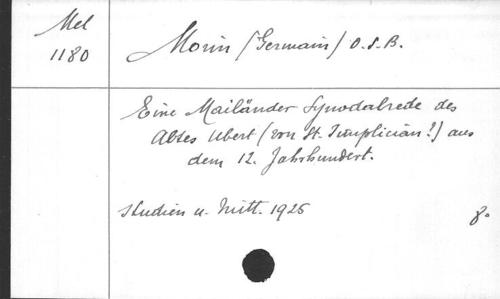 Mel
1180
Morin (Germain) O.S.B.
Eine Mailänder Synodalrede des
Abtes Ubert (von St. Simplician?) aus
dem 12. Jahrhundert.
Studien u. Mitt. 1925
8°